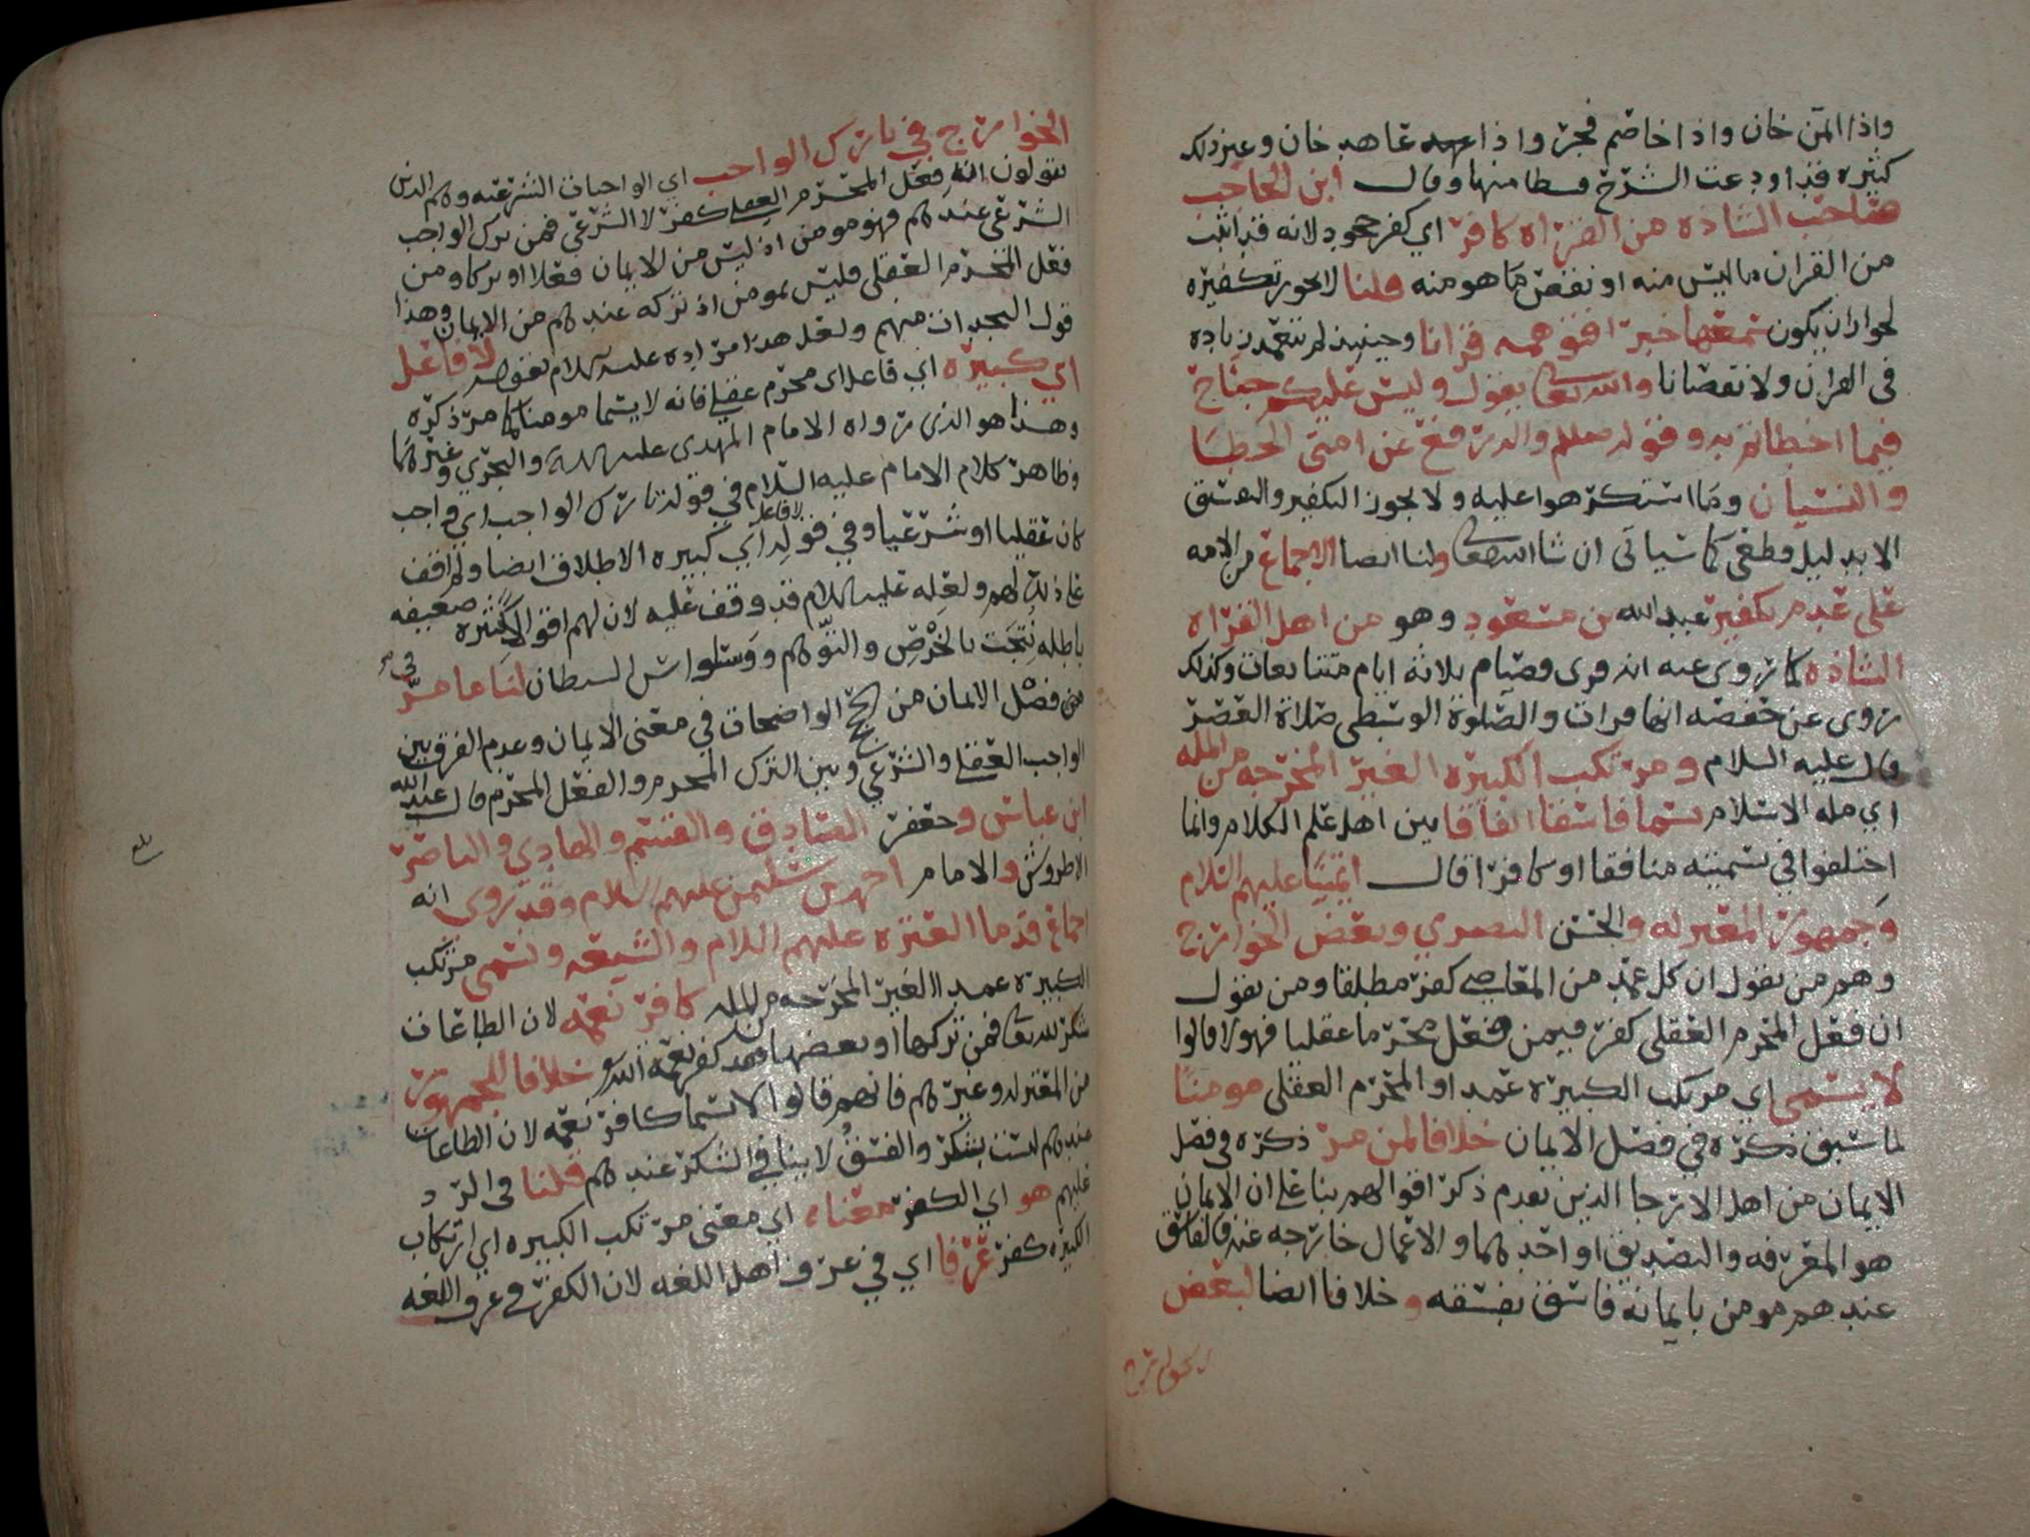 واذا ائتمن خان واذا خاصم فجر واذا عاهد خان وغير ذلك
كثيره قد اودعت الشرح قسطا منها وقال ابن الحاجب
صاحب الشاذه من القراه كافر اي كفر جحود لانه قد اثبت
من القران ما ليس منه او نقص ما هو منه قلنا لا يجوز تكفيره
لجواز ان يكون سمعها خبرا فتوهمه قرانا وحينئذ لم يتعمد زياده
في القران ولا نقصانا والله تعالى يقول وليس عليكم جناح
فيما اخطاتم به وقوله صلعم والد رفع عن امتي الخطا
والنسيان وما استكرهوا عليه ولا يجوز التكفير والتفسيق
الا بدليل قطعي كما سياتي ان شا الله تعالى ولنا ايضا الاجماع من الامه
على عدم تكفير عبد الله بن مسعود وهو من اهل القراه
الشاذه كما روي عنه انه قرى فصيام ثلاثه ايام متتابعات وكذلك
روي عن حفصه انها قرات والصلوة الوسطى صلاة العصر
قال عليه السلام ومرتكب الكبيره الغير المخرجه من المله
اي مله الاسلام يسما فاسقا اتفاقا بين اهل علم الكلام وانما
اختلفوا في تسميته منافقا او كافرا قال ائمتنا عليهم السلام
وجمهور المعتزله والحسن البصري وبعض الخوارج
وهم من يقول ان كل عمد من المعاصي كفر مطلقا ومن يقول
ان فعل المحرم العقلي كفر فيمن فعل محرما عقليا فهولا قالوا
لا يسمى اي مرتكب الكبيره عمدا او المحرم العقلي مومنا
لما سبق ذكره في فصل الايمان خلافا لمن مر ذكره في فصل
الايمان من اهل الارجا الذين تقدم ذكر اقوالهم بنا على ان الايمان
هو المعرفه والتصديق او احدهما والاعمال خارجه عنه فالفاسق
عندهم مومن بايمانه فاسق بفسقه وخلافا ايضا لبعض
الخوارج
الخوارج في تارك الواجب اي الواجبات الشرعيه وهم الذين
يقولون انه فعل المحرم العقلي كفر لا الشرعي فمن ترك الواجب
الشرعي عندهم فهو مومن اذ ليس من الايمان فعلا او تركا ومن
فعل المحرم العقلي فليس بمومن اذ تركه عندهم من الايمان وهذا
قول النجدات منهم ولعل هذا مراده عليه السلام بقوله لا فاعل
اي كبيره اي فاعل اي محرم عقلي فانه لا يسما مومنا كما مر ذكره
وهذا هو الذي رواه الامام المهدي عليه السلام والنجري وغيرهما
وظاهر كلام الامام عليه السلام في قوله تارك الواجب اي واجب
كان عقليا او شرعيا وفي قوله لا فاعل اي كبيره الاطلاق ايضا ولم اقف
على ذلك لهم ولعله عليه السلام قد وقف عليه لان لهم اقوالا كثيره ضعيفه
باطله نتجت بالخرص والتوهم ووسواس الشيطان لنا ما مر في
فصل الايمان من الحجج الواضحات في معنى الايمان وعدم الفرق بين
الواجب العقلي والشرعي وبين الترك المحرم والفعل المحرم قال عبد الله
ابن عباس وجعفر الصادق والقسم والهادي والناصر
الاطروش والامام احمد بن سليمن عليهم السلام وقد روي انه
اجماع قدما العتره عليهم السلام والشيعه ويسمى مرتكب
الكبيره عمدا الغير المخرجه من المله كافر نعمه لان الطاعات
شكر لله تعالى فمن تركها او بعضها فقد كفر نعمه الله خلافا للجمهور
من المعتزله وغيرهم فانهم قالوا لا يسما كافر نعمه لان الطاعات
عندهم ليست بشكر والفسق لا ينافي الشكر عندهم قلنا في الرد
عليهم هو اي الكفر معناه اي معنى مرتكب الكبيره اي ارتكاب
الكبيره كفر عرفا اي في عرف اهل اللغه لان الكفر في عرف اللغه